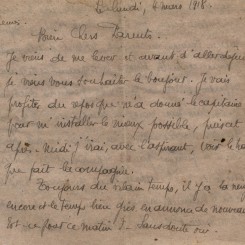 Le lundi, 4 mars 1918.
Bien Chers Parents
Je viens de me lever et avant d'aller
je viens vous souhaiter le bonjour. Je vais
profiter du repos que m'a donné le capitaine
pour m'installer le mieux possible, puis cet
après-midi j'irai, avec l'aspirant, voir le
que fait la compagnie.
Toujours du vilain temps, il y a la neige
encore et le temps bien gris en amena de nouveau
Est-ce pour ce matin ? Sans doute